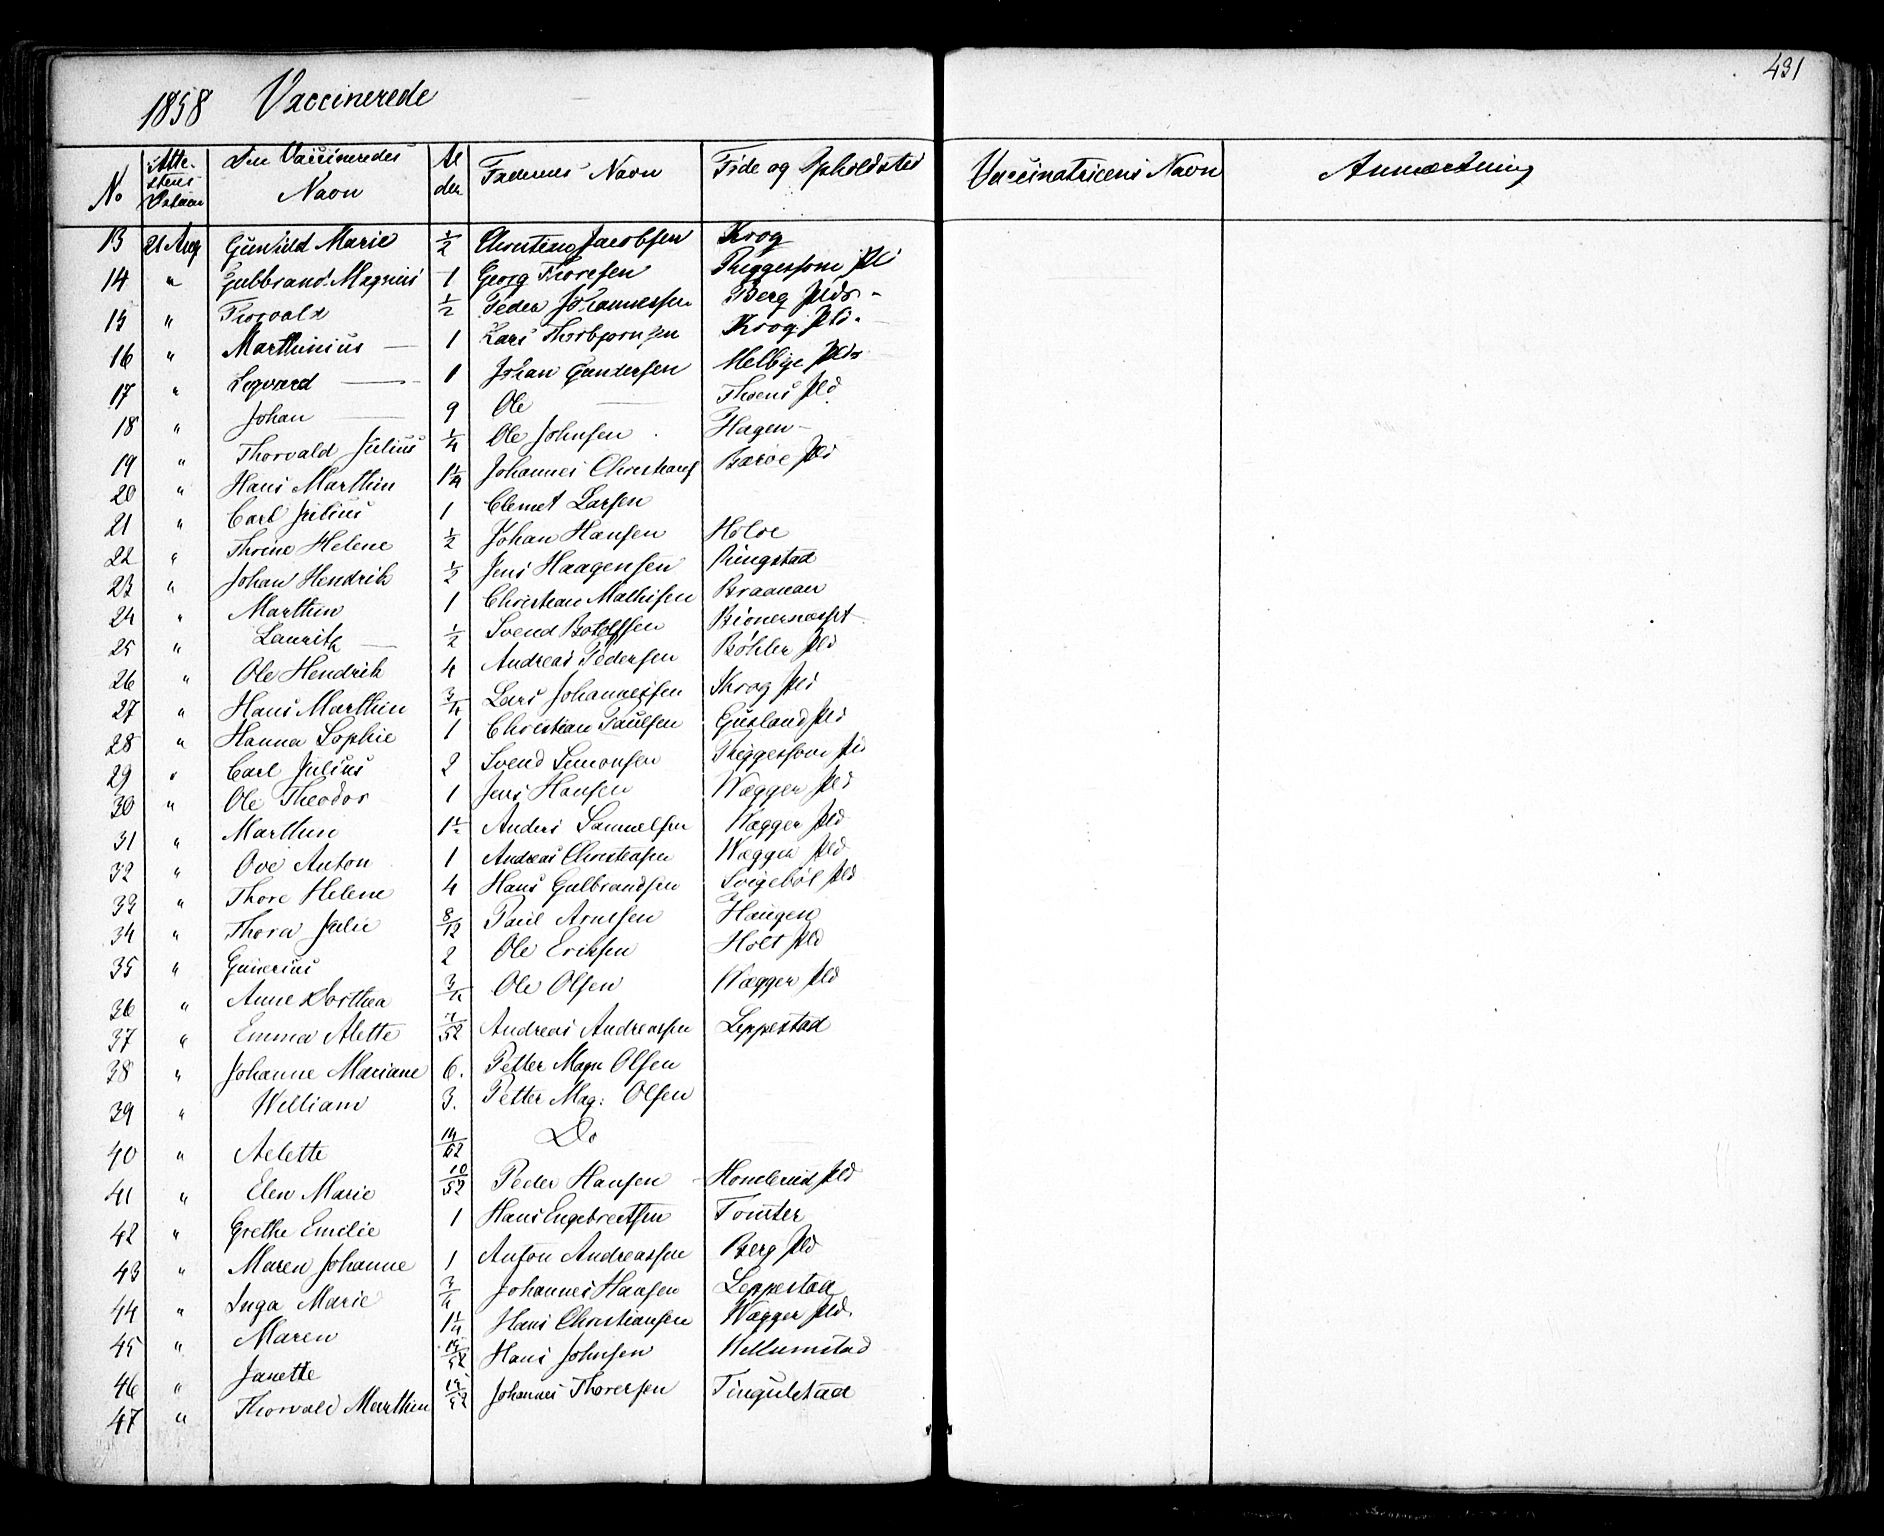 431
1858 Vaccinerede
No | Atte-stens Datum | Den Vaccineredes Navn | Alder | Faderens Navn | Føde og Opholdsted | Vaccinatricens Navn | Anmærkning
13 21 Aug Gunild Marie 1/2 Jacobsen Krog
14 " Gulbrand Magnus 1 Georg Thoresen
15 " Thorvald 1/2 Peder Johannessen Berg Pld
16 " Marthinius — 1 Lars Thorbjørnsen Krog Pld.
17 " Segvard — 1 Johan Gundersen Melbye Pld
18 " Johan — 9 Ole — Thoens Pld
19 " Thorvald Julius 1/4 Ole Johnsen Hagen
20 " Hans Marthin 1 1/4 Johannes Christians Barøe Pld
21 " Carl Julius 1 Clemet Larsen
22 " Thrine Helene 1/2 Johan Hansen Holøe
23 " Johan Hendrik 1/2 Jens Haagensen Ringstad
24 " Marthin 1 Christian Mathisen Braanan
25 " Lauritz — 1/2 Svend Botolfsen
26 " Ole Hendrik 4 Andreas Pedersen Bøhler Pld
27 " Hans Marthin 3/4 Lars Johannessen Krog Pld
28 " Hanna Sophie 1 Christian Paulsen Gusland Pld
29 " Carl Julius 2 Svend Simonsen
30 " Ole Theodor 1 Jens Hansen Wægger Pld
31 " Marthin 1 1/2 Anders Samuelsen Wægger Pld
32 " Ove Anton 1 Andreas Christiansen Wægger Pld
33 " Thore Helene 4 Hans Gulbrandsen Svigebøl Pld
34 " Thora Julie 8/12 Paul Arnesen Haugen
35 " Gunerius 2 Ole Eriksen Holt Pld
36 " Anne Dorthea Ole Olsen Wægger Pld
37 " Emma Alette Andreas Andreassen Leppestad
38 " Johanne Mariane 6. Petter Magn Olsen
39 " William 3. Petter Mag: Olsen
40 " Aelette 14/52 Do
41 " Elen Marie 10/52 Peder Hansen Pld
42 " Grethe Emilie 1 Hans Engebretsen Tomter
43 " Maren Johanne 1 Anton Andreassen Berg Pld
44 " Inga Marie 3/4 Johannes Hansen Leppestad
45 " Maren 1 1/4 Hans Christiansen Wægger Pld.
46 " Janette Hans Johnsen Mellumstad
47 " Thorvald Marthin Johannes Thoresen Tingulstad